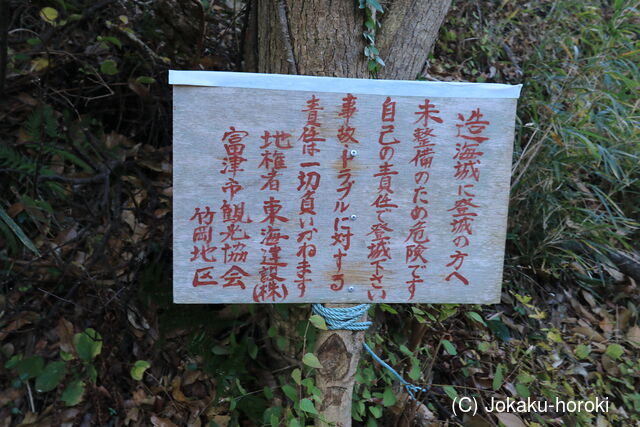 造海城に登城の方へ
未整備のため危険です
自己の責任で登城下さい
事故・トラブルに対する
責任は一切負いかねます
地権者 東海建設㈱
富津市観光協会
竹岡地区
(C) Jokaku-horoki